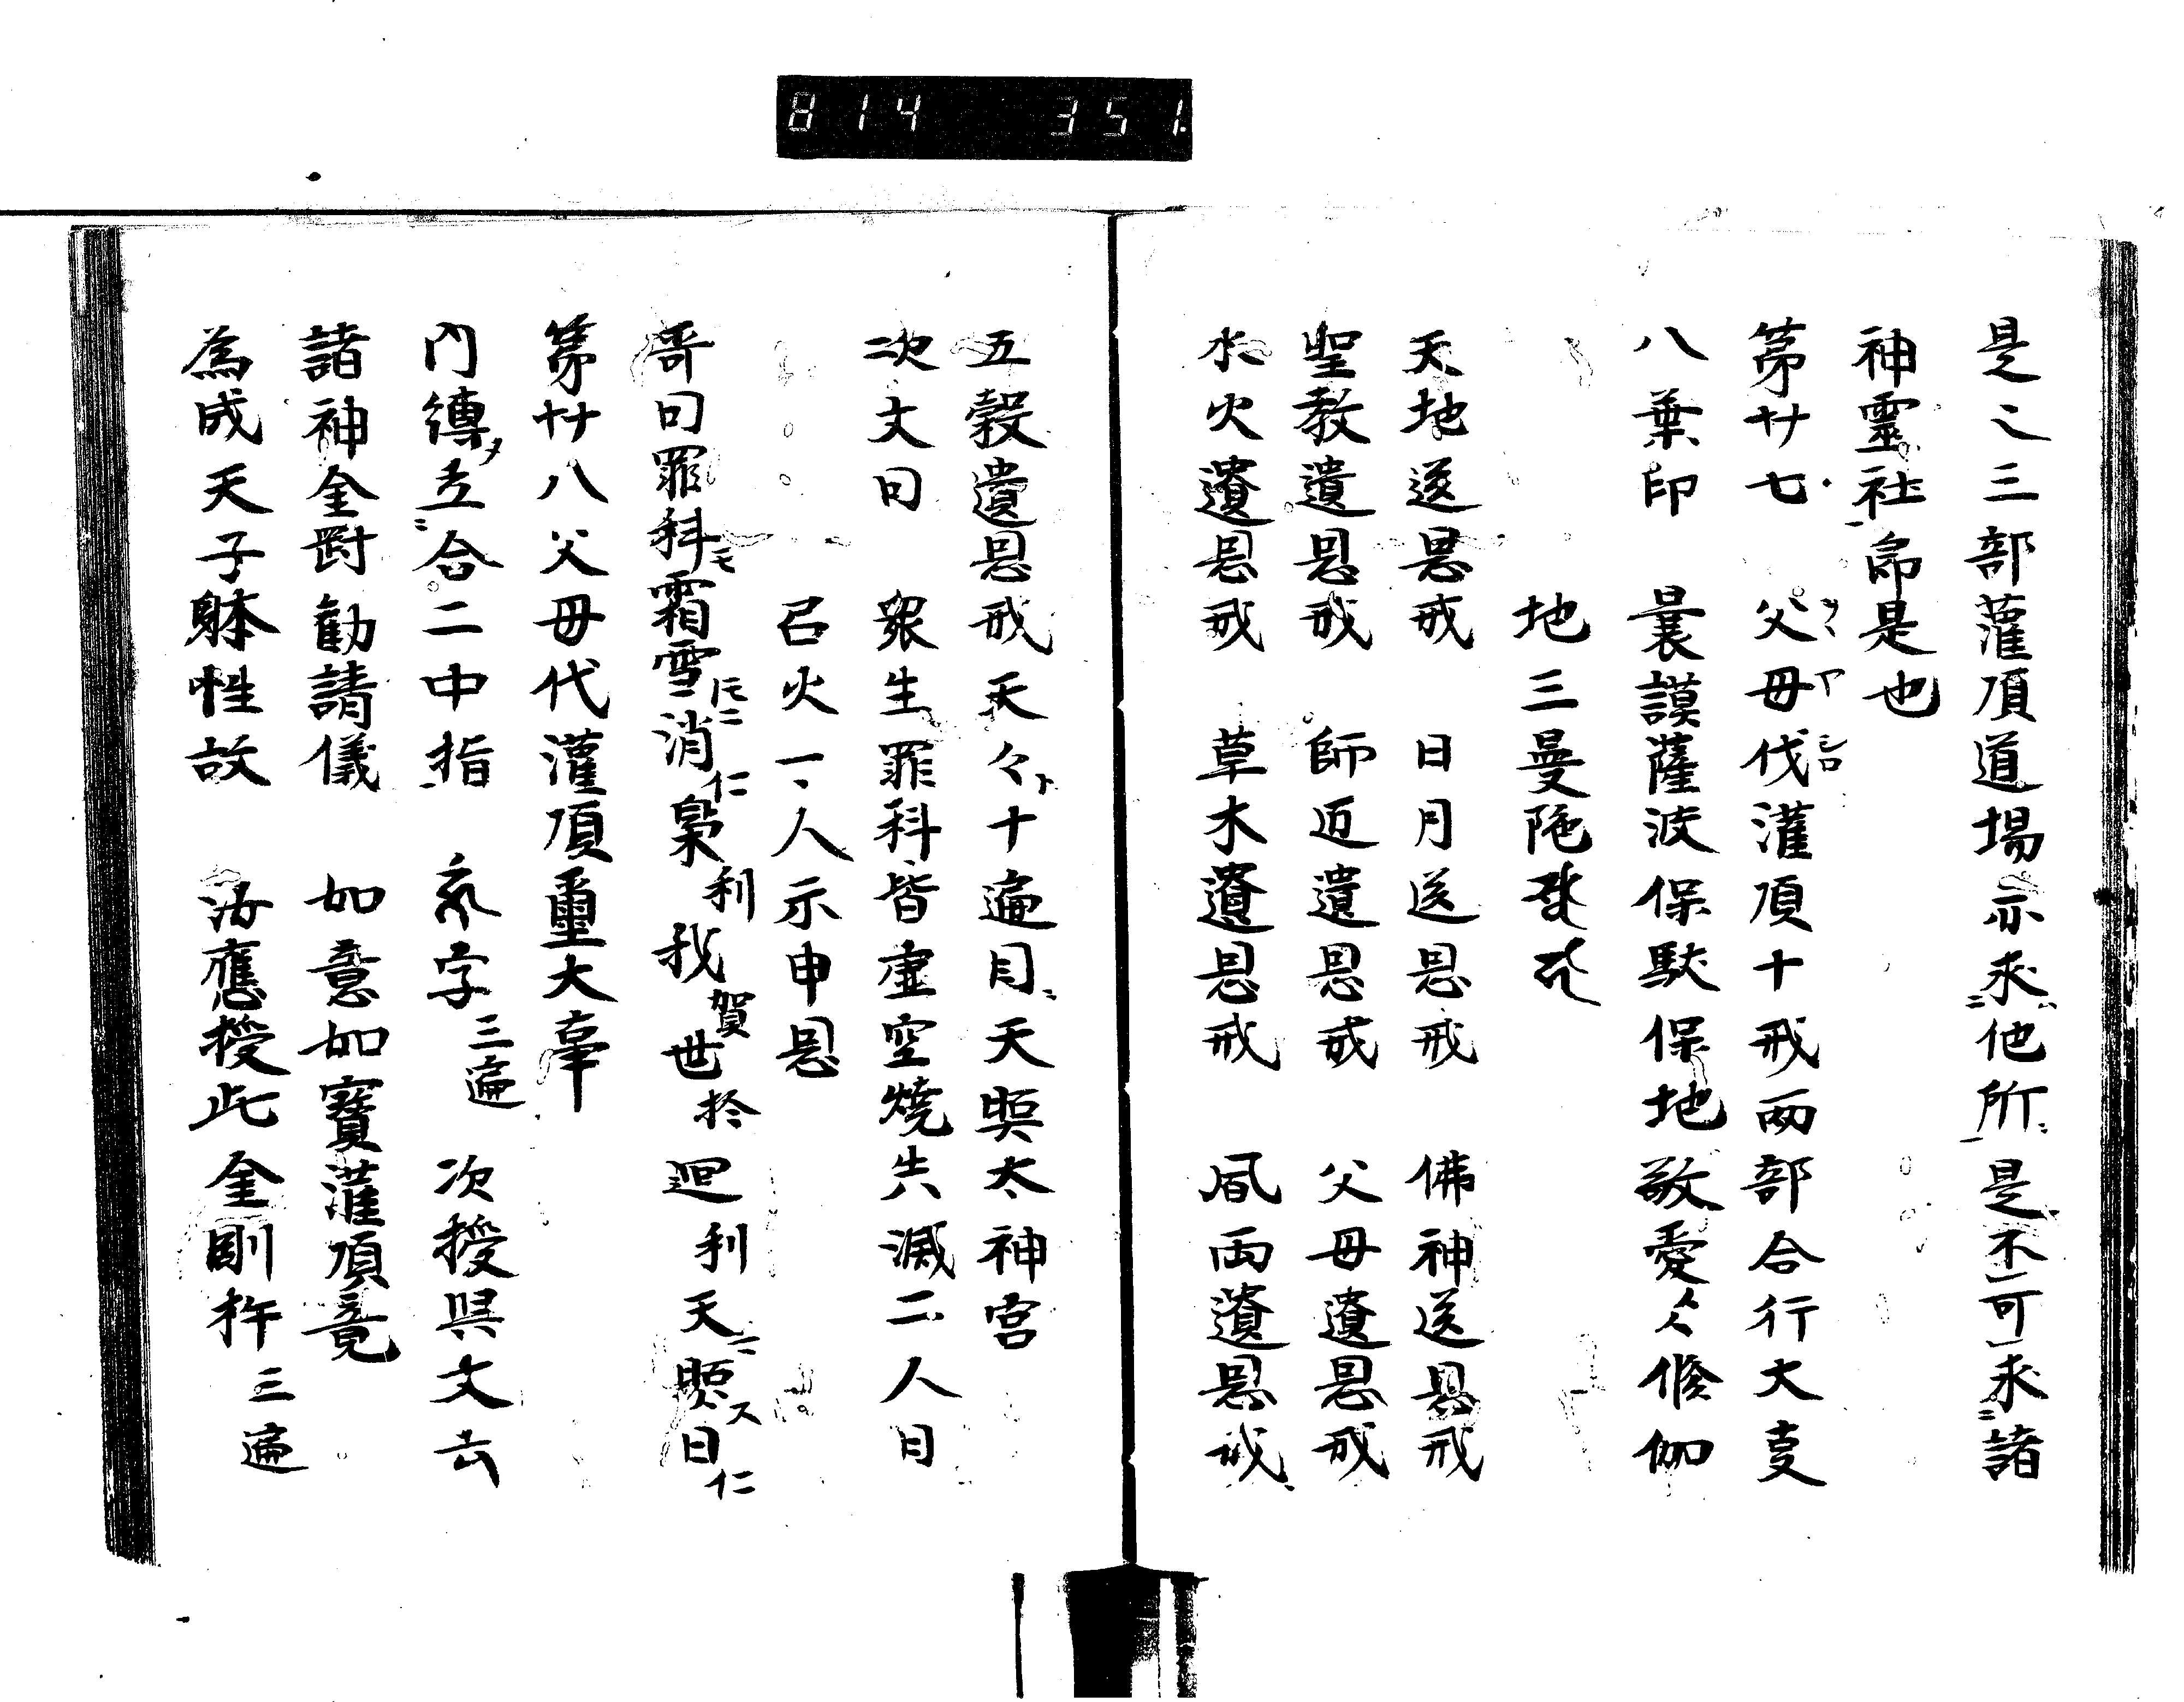 814 351.
是之三部灌頂道場亦求他所是不可求諸
神靈社即是也
第廿七 父母代灌頂十戒両部合行大事
八葉印 曩謨薩波保駄保地敬愛々修伽
地三曼陁
天地送恩戒 日月送恩戒 佛神送恩戒
聖教遺恩戒 師匠遺恩戒 父母遺恩戒
水火遺恩戒 草木遺恩戒 風雨遺恩戒
五穀遺恩戒天々ト十遍目天照太神宮
次文曰 衆生罪科皆虚空燒失滅二人目
召火一人示申恩
哥曰罪科モ霜雪ニ消仁梟利我賀世於廻利天照ス日仁
第廿八父母代灌頂重大事
内縛〆立合二中指 字三遍 次授與文云
諸神金罰勧請儀 如意如寶灌頂竟
為成天子躰性故 汝應授此金剛杵三遍